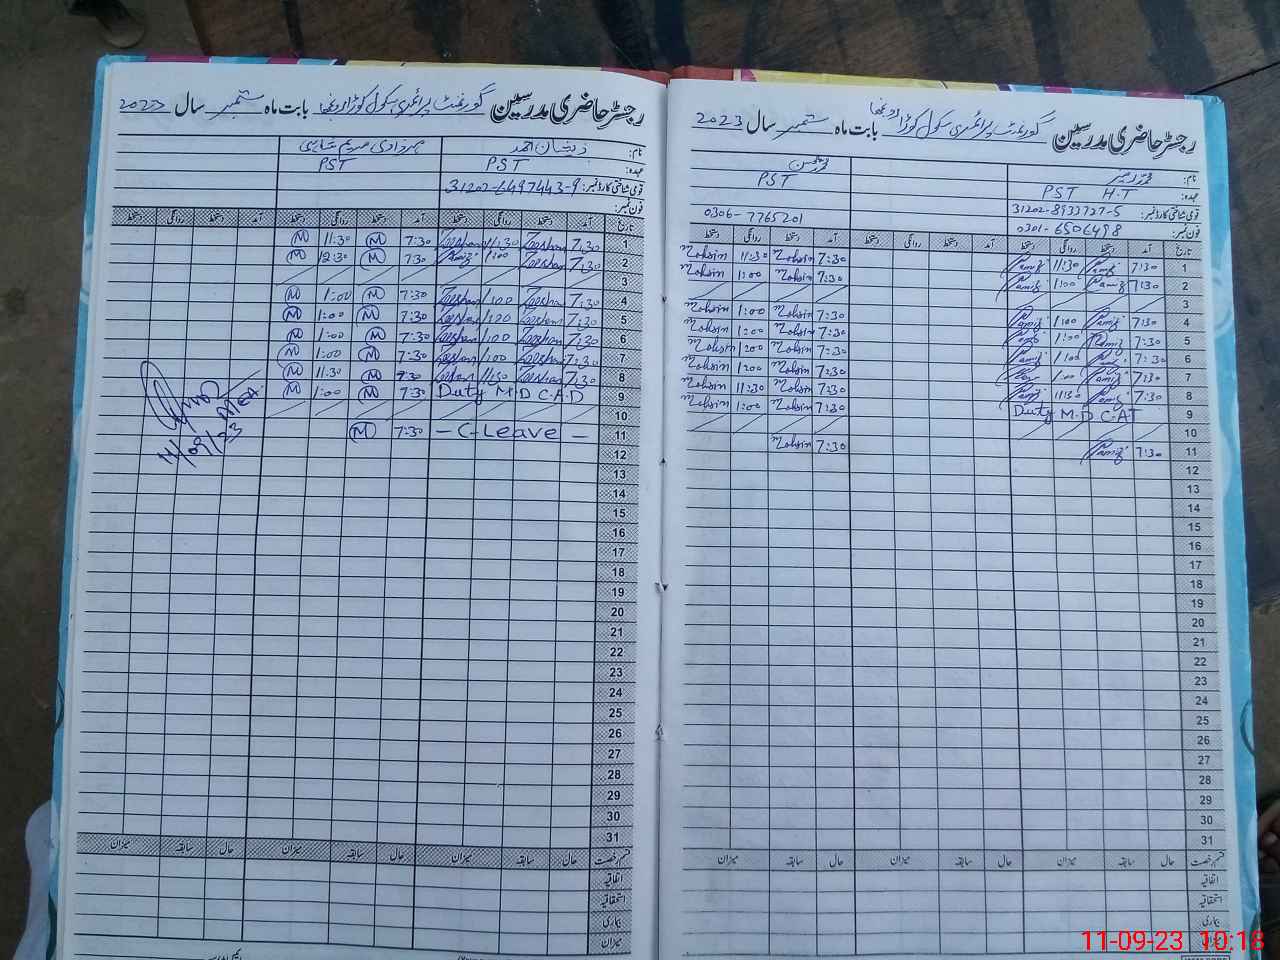 رجسٹر حاضری مدرسین گورنمنٹ پرائمری سکول بابت ماہ ستمبر سال 2023
نام: ذیشان احمد
عہدہ: PST PST
قومی شناختی کارڈ نمبر: 31202-6497443-9
فون نمبر:
تاریخ آمد دستخط روانگی دستخط آمد دستخط روانگی دستخط آمد دستخط روانگی دستخط
1 7:30 Zeeshan 11:30 Zeeshan 7:30 M 11:30 M
2 7:30 Zeeshan 1:00 7:30 M 12:30 M
3
4 7:30 Zeeshan 1:00 Zeeshan 7:30 M 1:00 M
5 7:30 Zeeshan 1:00 Zeeshan 7:30 M 1:00 M
6 7:30 Zeeshan 1:00 Zeeshan 7:30 M 1:00 M
7 7:30 Zeeshan 1:00 Zeeshan 7:30 M 1:00 M
8 7:30 Zeeshan 11:30 Zeeshan 7:30 M 11:30 M
9 Duty M.D C.A.D 7:30 M 1:00 M
10
11 - C-Leave - 7:30 M
AEA
11/09/23
12
13
14
15
16
17
18
19
20
21
22
23
24
25
26
27
28
29
30
31
قسم رخصت حال سابقہ میزان حال سابقہ میزان حال سابقہ میزان
اتفاقیہ
استحقاقیہ
بیماری
میزان
رجسٹر حاضری مدرسین گورنمنٹ پرائمری سکول بابت ماہ ستمبر سال 2023
نام: محمد محسن
عہدہ: PST H.T PST
قومی شناختی کارڈ نمبر: 31202-8933727-5
فون نمبر: 0301-6506498 0306-7765201
تاریخ آمد دستخط روانگی دستخط آمد دستخط روانگی دستخط آمد دستخط روانگی دستخط
1 7:30 Ramiz 11:30 Ramiz 7:30 Mohsin 11:30 Mohsin
2 7:30 Ramiz 1:00 Ramiz 7:30 Mohsin 1:00 Mohsin
3
4 7:30 Ramiz 1:00 Ramiz 7:30 Mohsin 1:00 Mohsin
5 7:30 Ramiz 1:00 Ramiz 7:30 Mohsin 1:00 Mohsin
6 7:30 Ramiz 1:00 Ramiz 7:30 Mohsin 1:00 Mohsin
7 7:30 Ramiz 1:00 Ramiz 7:30 Mohsin 1:00 Mohsin
8 7:30 Ramiz 11:30 Ramiz 7:30 Mohsin 11:30 Mohsin
9 Duty M.D C-AT 7:30 Mohsin 1:00 Mohsin
10
11 7:30 Ramiz 7:30 Mohsin
12
13
14
15
16
17
18
19
20
21
22
23
24
25
26
27
28
29
30
31
قسم رخصت حال سابقہ میزان حال سابقہ میزان حال سابقہ میزان
اتفاقیہ
استحقاقیہ
بیماری
میزان
11-09-23 10:18